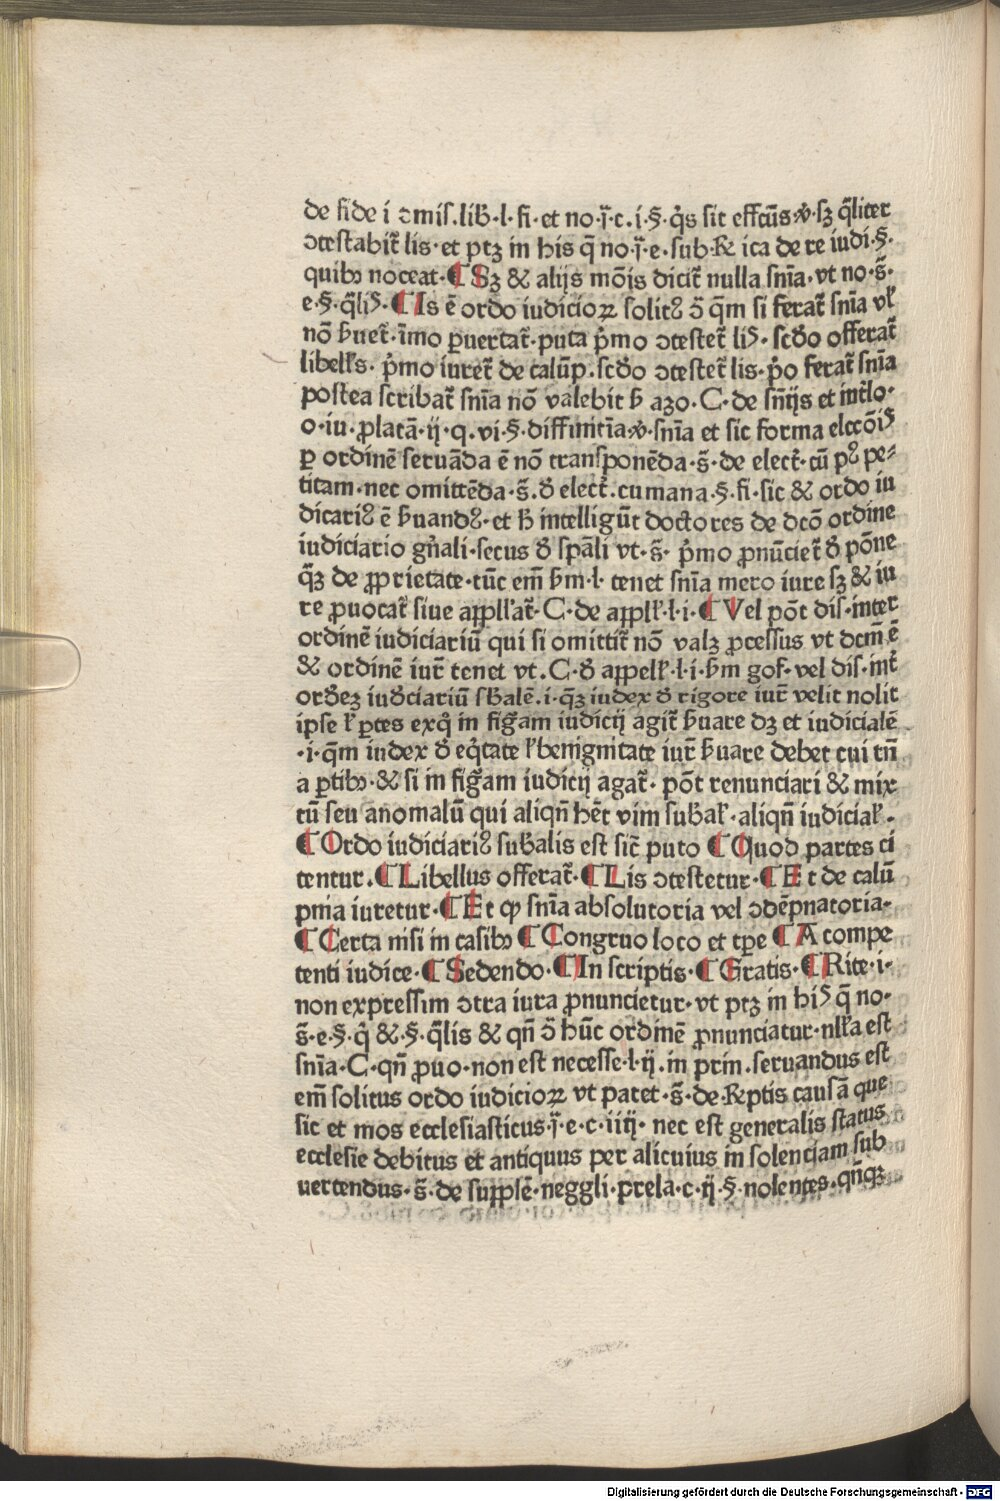 de fide i ↄmiſ.lib̄·l·fi·et no·j̄·c.i·§·q̇s ſit effcūs ꝟ·ſꝫ q̄liter
ↄteſtabit̄ lis·et ptꝫ in his q̄ no·j̄·e·ſub·℞ ica de re iudi·§·
quibꝫ noceat·¶ Sꝫ & alijs mōis dicit̄ nulla ſnīa·vt no·s̄·
e·§·q̄liꝰ·¶ Is ē ordo iudicioꝝ ſolitꝰ ↄ̄ q̄m ſi ferat̄ ſnīa vl̄
nō ẜuet̄·īmo ꝑuertat̄·puta p̍mo ↄteſtet̄ liꝰ·ſcd̄o offerat̄
libell̄s·p̍mo iuret̄ de calūp.ſcd̄o ↄteſtet̄ lis·p̍o ferat̄ ſnīa
poſtea ſcribat̄ ſnīa nō valebit ẜ azo·C·de ſnt̄ijs et int̄lo·
o·iu·ꝓlatā·ij·q·vi·§·diffinit̄ia ꝟ·ſnīa et ſic forma eleccōis
ꝑ ordinē ſeruāda ē nō tranſponēda·s̄·de elect̄·cū pꝰ pe⸗
titam·nec omittēda·s̄.đ elect̄.cumana·§·fi·ſic & ordo iu
dicariꝰ ē ẜuandꝰ·et ħ intelligūt doctores de dcō ordine
iudiciario gn̄ali·ſecus đ ſpāli vt·s̄·p̍mo ꝓnūciet̄ đ pōne
q̄ꝫ de ꝓprietate·tūc em̄ ẜm·l·tenet ſnīa mero iure ſꝫ & iu
re ꝓuocat̄ ſiue appll̄at̄·C·de appll̄·l·i·¶ Vel pōt diſ·inter
ordinē iudiciariū qui ſi omittit̄ nō valꝫ ꝓceſſus vt dcm̄ ē
& ordinē iur̄ tenet vt.C·đ appell̄·l·i·ẜm gof·vel diſ·int̄
ordēꝫ iuđciariū ſb̄alē.i·q̄ꝫ iudex đ rigore iur̄ velit nolit
ipſe l̄ ꝑtes exq̇ in fig̅am iudicij agit̄ ẜuare dꝫ et iudicialē
·i·q̄m iudex đ eq̇tate l̄ benignitate iur̄ ẜuare debet cui tn̄
a ꝑtibꝫ·& ſi in fig̅am iudicij agat̄·pōt renunciari & mix
tū ſeu anomalū qui aliqn̄ hēt vim ſub̄al̄·aliqn̄ iudicial̄·
¶ Ordo iudiciariꝰ ſub̄alis eſt ſic̄ puto ¶ Quod partes ci
tentur.¶ Libellus offerat̄·¶ Lis ↄteſtetur·¶ Et de calū
pnia iuretur·¶ Et ꝙ ſnīa abſolutoria vel ↄdēpnatoria·
¶ Certa niſi in caſibꝫ ¶ Congruo loco et tꝑe ¶ A compe
tenti iudice·¶ Sedendo·¶ In ſcriptis·¶ Gratis·¶ Rite·i·
non expreſſim ↄtra iura ꝓnuncietur·vt ptꝫ in hiꝰ q̄ no·
s̄·e·§·q̇ &·§·q̄lis & qn̄ ↄ̄ hūc ordinē ꝓnunciatur·nll̄a eſt
ſnīa·C·qn̄ ꝓuo·non eſt neceſſe·l·ij.in prin.ſeruandus eſt
em̄ ſolitus ordo iudicioꝝ vt patet·s̄·de·℞ptis cauſā que
ſic et mos eccleſiaſticus·j̄·e·c·iiij·nec eſt generalis ſtatus
eccleſie debitus et antiquus per alicuius in ſolenciam ſub
uertendus·s̄·de ſupplē·neggli·prela·c·ij·§·nolentes·qn̄qꝫ
Digitalisierung gefördert durch die Deutsche Forschungsgemeinschaft · DFG